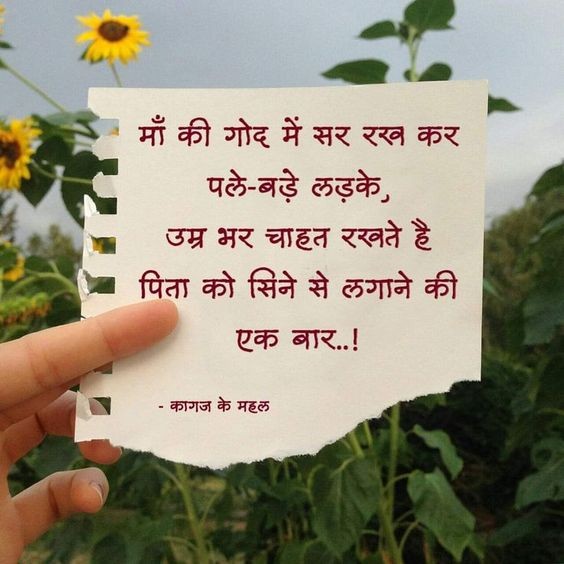 माँ की गोद में सर रख कर
पले-बड़े लड़के,
उम्र भर चाहत रखते है
पिता को सिने से लगाने की
एक बार..!
- कागज के महल